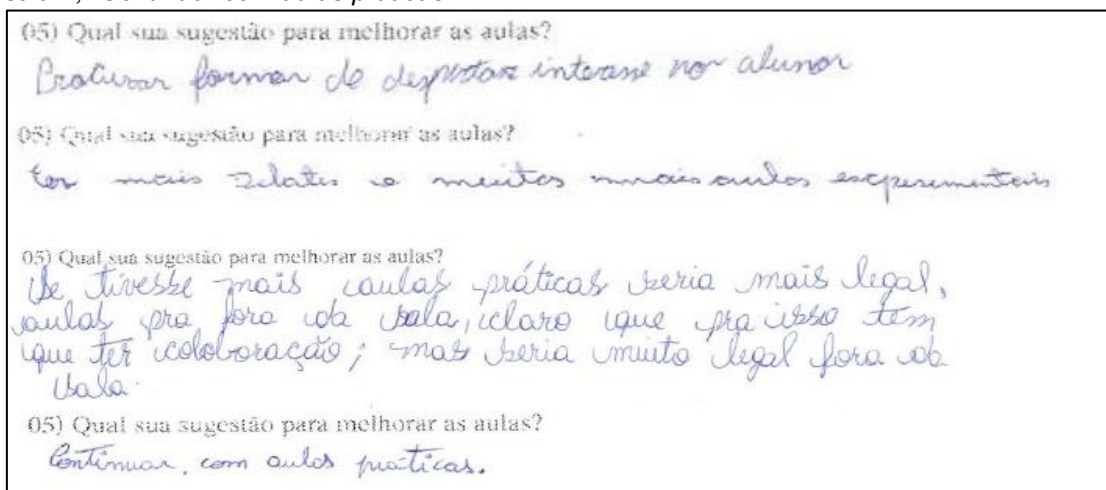 05) Qual sua sugestão para melhorar as aulas?
Procurar formar de despertar interesse nor alunor
05) Qual sua sugestão para melhorar as aulas?
ter mais e muitas mais aulas esperimentais
05) Qual sua sugestão para melhorar as aulas?
Se tivesse mais aulas práticas seria mais legal,
aulas pra fora da sala, claro que pra isso tem
que ter coloboração; mas seria muito legal fora da
sala.
05) Qual sua sugestão para melhorar as aulas?
Continuar, com aulas práticas.